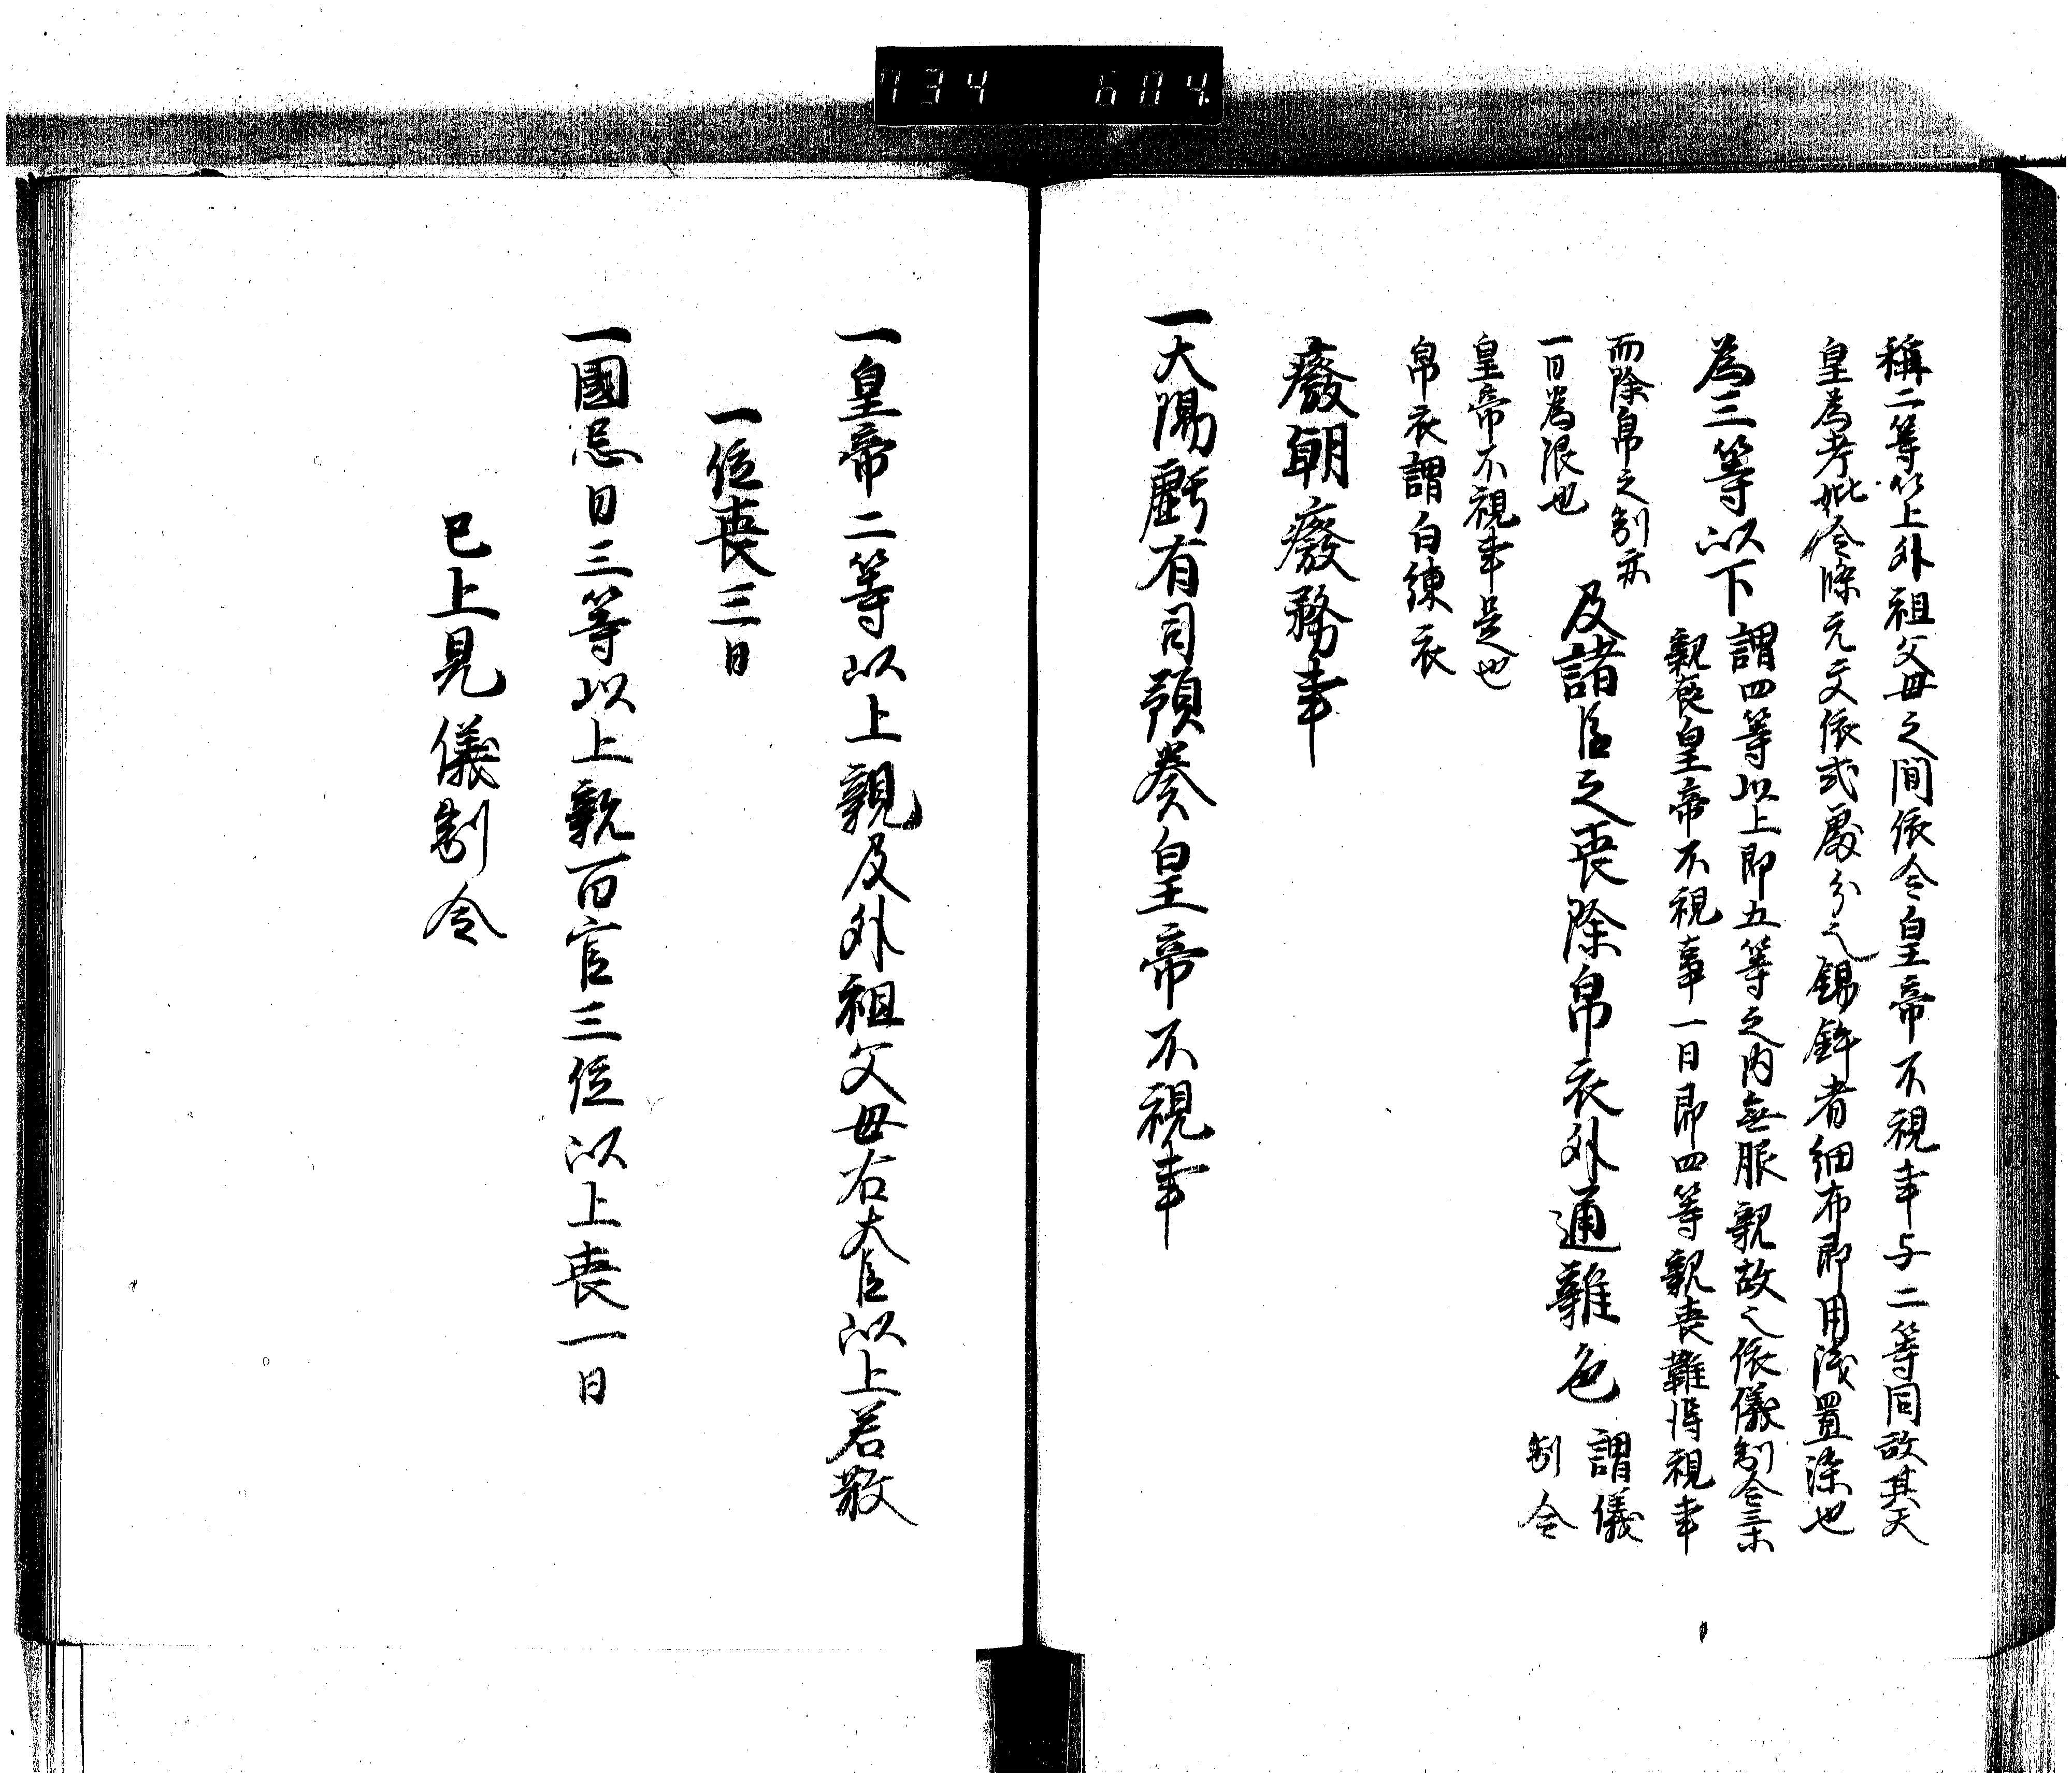 734 604
稱二等以上外祖父母之間依令皇帝不視事与二等同故其天
皇為考妣令條无文依式處分之錫紵者細布即用浅墨染也
為三等以下
謂四等以上即五等之内無服親故之依儀制令三等
親喪皇帝不視事一日即四等親喪雖得視事
而除帛之制亦
一日為限也
及諸臣之喪除帛衣外通雜色
謂儀
制令
皇帝不視事是也
帛衣謂白練衣
癈朝癈務事
一大陽虧有司預奏皇帝不視事
一皇帝二等以上親及外祖父母右大臣以上若散
一位喪三日
一國忌日三等以上親百官三位以上喪一日
已上見儀制令